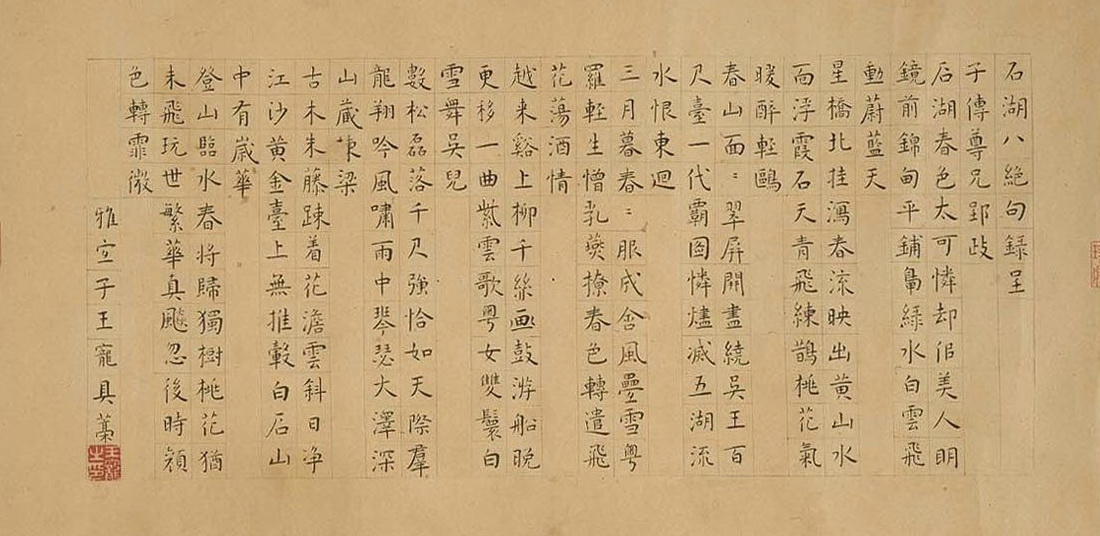 石湖八絕句録呈
子傳尊兄郢政
石湖春色太可憐却佀美人明
鏡前錦甸平鋪鳧綠水白雲飛
動蔚藍天
星橋北挂瀉春流映出黄山水
面浮霞石天青飛練鵲桃花氣
暖醉輕鷗
春山面〻翠屏開盡繞吳王百
尺臺一代霸圖憐燼滅五湖流
水恨東迴
三月暮春〻服成含風疊雪粤
羅輕生憎乳燕撩春色轉遣飛
花蕩酒情
越来谿上柳千絲画鼓游船晚
更移一曲紫雲歌粤女雙鬟白
雪舞吳兒
數松磊落千尺強恰如天際羣
龍翔吟風嘯雨中琴瑟大澤深
山藏棟梁
古木朱藤踈着花澹雲斜日净
江沙黄金臺上無推轂白石山
中有歲華
登山臨水春將歸獨樹桃花猶
未飛玩世繁華真飈忽後時顔
色轉霏微
雅宜子王寵具藁
王寵之印